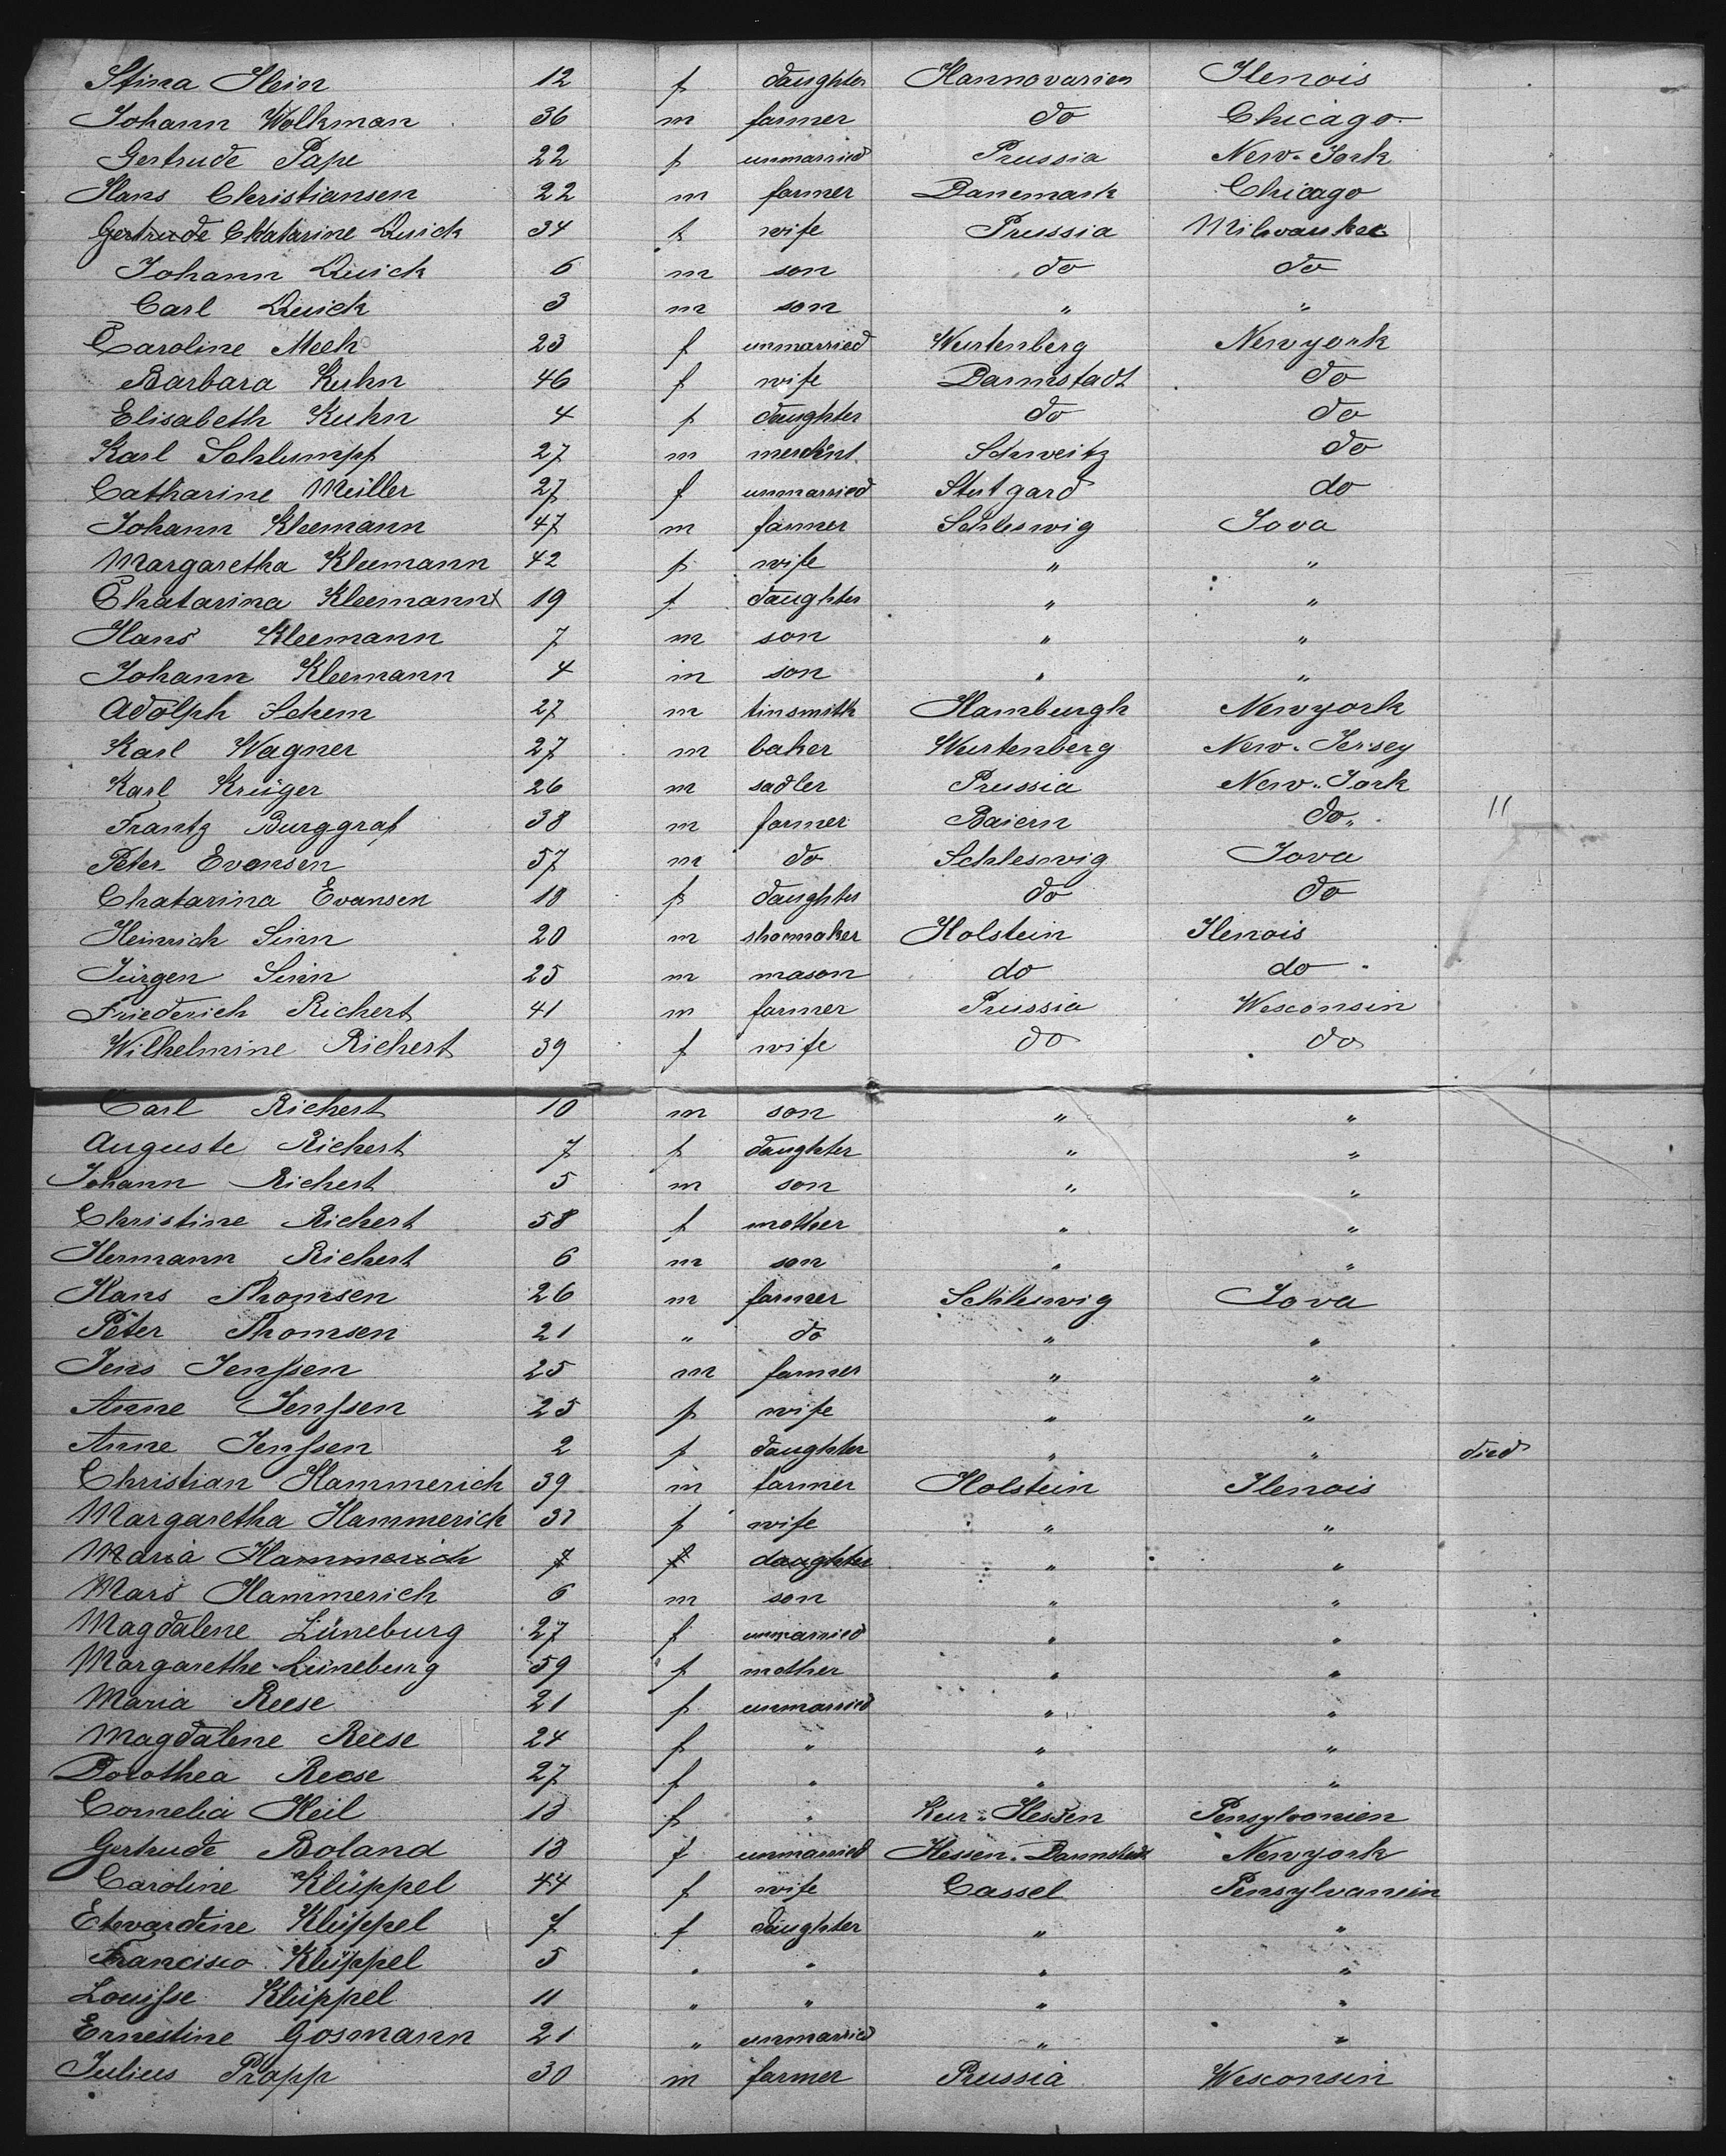 Stina Hein 12 f daughter Hannovarien Ilenois
Johann Wolkman 36 m farmer do Chicago
Gertrude Pape 22 f unmarried Prussia New-York
Hans Christiansen 22 m farmer Danemark Chicago
Gertrude Chatarine Quick 34 f wife Prussia Milwaukee
Johann Quick 6 m son do do
Carl Quick 3 m son " "
Caroline Meeh 23 f unmarried Wurtenberg Newyork
Barbara Kuhn 46 f wife Darmstadt do
Elisabeth Kuhn 4 f daughter do do
Karl Schlumpf 27 m Schweitz do
Catharine Müller 27 f unmarried Stutgard do
Johann Kleemann 47 m farmer Schleswig Iova
Margaretha Kleemann 42 f wife " "
Chatarina Kleemann 19 f daughter " "
Hans Kleemann 7 m son " "
Johann Kleemann 4 m son " "
Adolph Schem 27 m tinsmith Hamburgh Newyork
Karl Wagner 27 m baker Wurtenberg New-Jersey
Karl Krüger 26 m sadler Prussia New-York
Frantz Burggraf 38 m farmer Baiern do " 11
Peter Evansen 57 m do Schleswig Iova
Chatarina Evansen 18 f daughter do do
Heinrich Sinn 20 m shomaker Holstein Ilenois
Jürgen Sinn 25 m mason do do
Friederich Richert 41 m farmer Prussia Wesconsin
Wilhelmine Richert 39 f wife do do
Carl Richert 10 m son " "
Auguste Richert 7 f daughter " "
Johann Richert 5 m son " "
Christine Richert 58 f mother " "
Hermann Richert 6 m son " "
Hans Thomsen 26 m farmer Schleswig Iova
Peter Thomsen 21 " do " "
Jens Jenssen 25 m farmer " "
Anne Jenssen 25 f wife " "
Anne Jenssen 2 f daughter " " died
Christian Hammerich 39 m farmer Holstein Ilenois
Margaretha Hammerich 37 f wife " "
Maria Hammerich 7 f daughter " "
Mars Hammerich 6 m son " "
Magdalene Lüneburg 27 f unmarried " "
Margarethe Lüneburg 59 f mother " "
Maria Reese 21 f unmarried " "
Magdalene Reese 24 f " " "
Dorothea Reese 27 f " " "
Cornelia Heil 18 f " Kur-Hessen Pensylvonien
Gertrude Boland 18 f unmarried Hessen-Darmstadt Newyork
Caroline Klüppel 44 f wife Cassel Pensylvanien
Edvardine Klüppel 7 f daughter " "
Francisco Klüppel 5 " " " "
Louisse Klüppel 11 " " " "
Ernestine Gosmann 21 " unmarried " "
Julius Prapp 30 m farmer Prussia Wesconsin